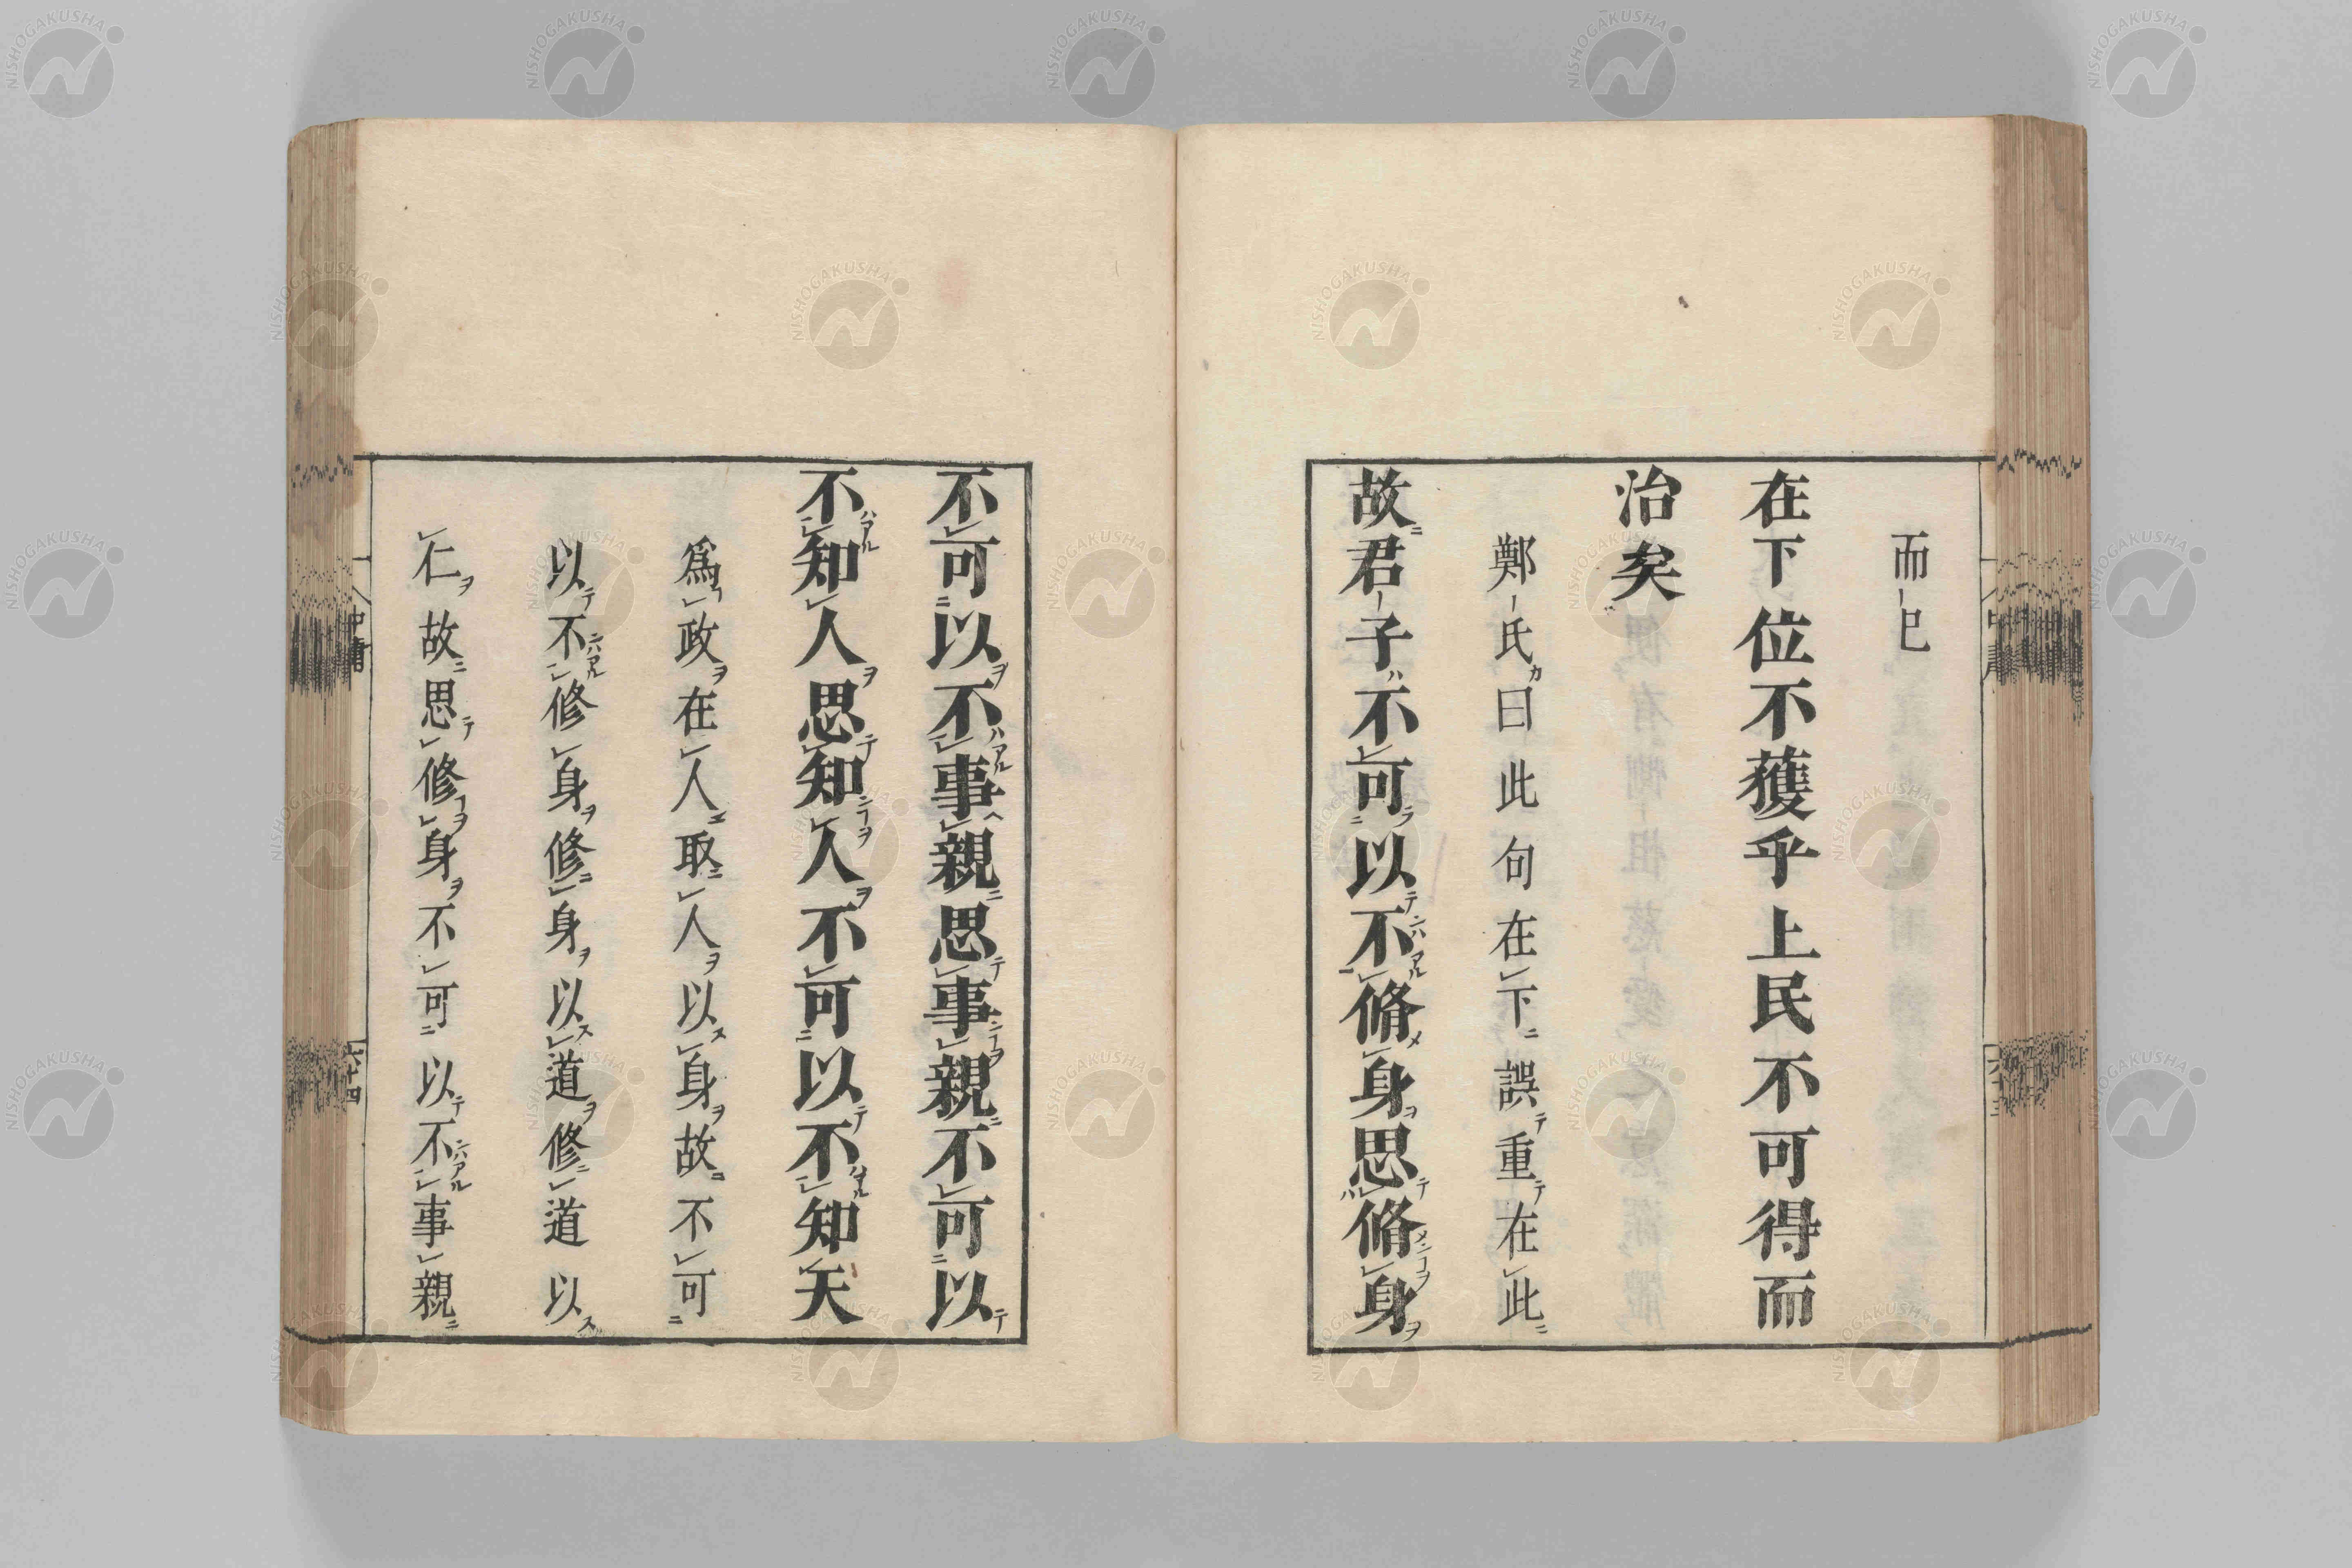 而已
在下位不獲乎上民不可得而
治矣
鄭氏曰此句在下誤重在此
故君子不可以不脩身思脩身
不可以不事親思事親不可以
不知人思知人不可以不知天
爲政在人取人以身故不可
以不修身修身以道修道以
仁故思修身不可以不事親
中庸
六十四
NISHOGAKUSHA